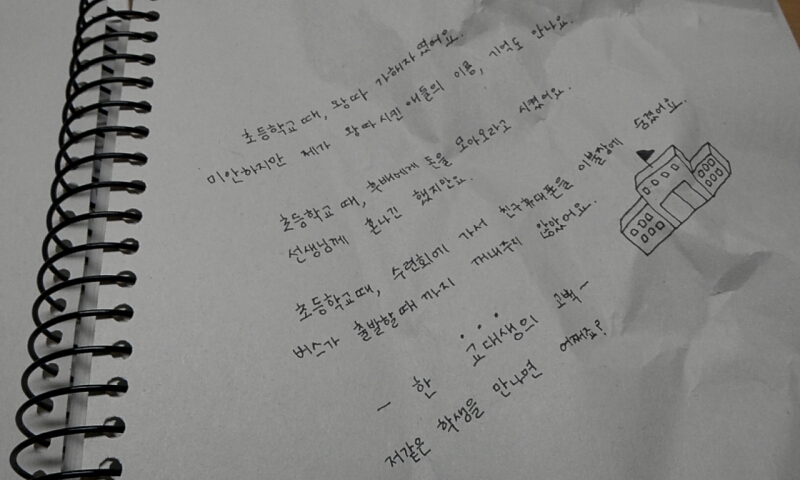 초등학교 때, 왕따 가해자였어요.
미안하지만 제가 왕따시킨 애들의 이름, 기억도 안나요.
초등학교 때, 후배에게 돈을 모아오라고 시켰어요.
선생님께 혼나긴 했지만요.
초등학교때, 수련회에 가서 친구휴대폰을 이불장에 숨겼어요.
버스가 출발할때까지 꺼내주지 않았어요.
- 한 교대생의 고백 -
저같은 학생을 만나면 어쩌죠?